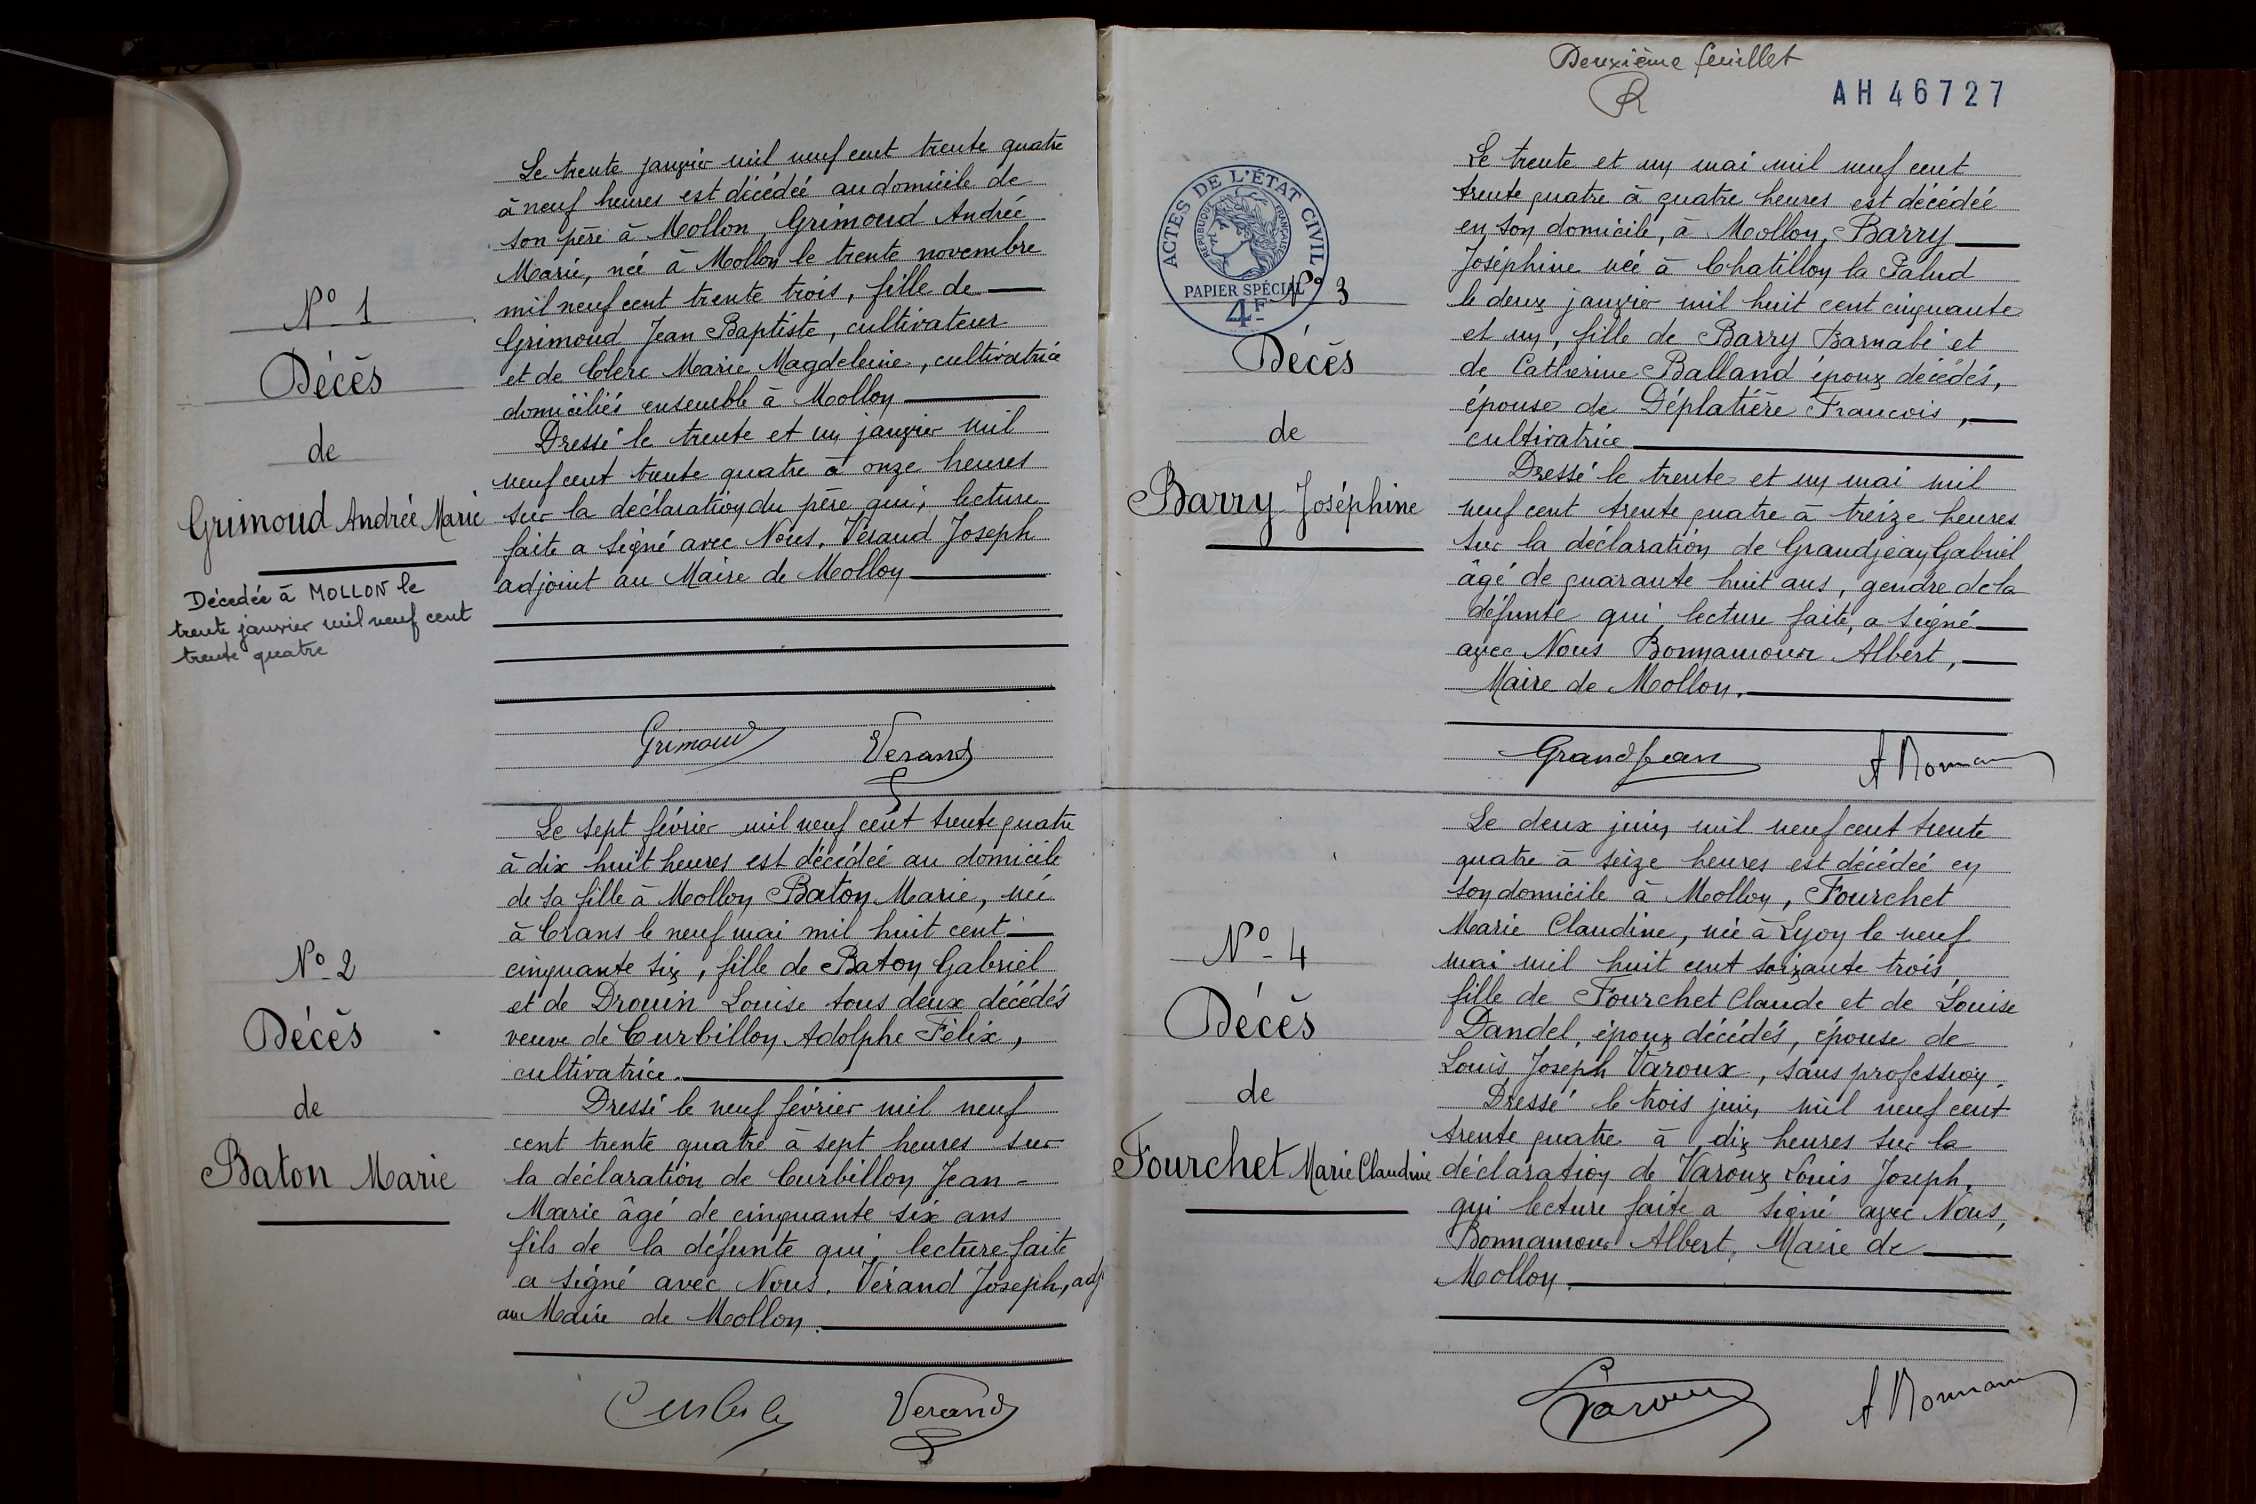 Le trente janvier mil neuf cent trente quatre
à neuf heures est décédée au domicile de
son père à Mollon, Grimoud Andrée
Marie, née à Mollon le trente novembre
mil neuf cent trente trois, fille de
Grimoud Jean Baptiste, cultivateur
et de Clerc Marie Magdeleine, cultivatrice
domiciliés ensemble à Mollon
Dressé le trente et un janvier mil
neuf cent trente quatre à onze heures
sur la déclaration du père qui, lecture
faite a signé avec Nous, Vérand Joseph
adjoint au Maire de Mollon
No 1
Décès
de
Grimoud Andrée Marie
Décédée à MOLLON le
trente janvier mil neuf cent
trente quatre
Grimoud Verand
Le sept février mil neuf cent trente quatre
à dix huit heures est décédée au domicile
de sa fille à Mollon Baton Marie, née
à Crans le neuf mai mil huit cent
cinquante six, fille de Baton Gabriel
et de Drouin Louise tous deux décédés
veuve de Curbillon Adolphe Félix,
cultivatrice.
Dressé le neuf février mil neuf
cent trente quatre à sept heures sur
la déclaration de Curbillon Jean-
Marie âgé de cinquante six ans
fils de la défunte qui, lecture faite
a signé avec Nous. Vérand Joseph, adj
au Maire de Mollon.
No 2
Décès
de
Baton Marie
Verand
Deuxième feuillet
AH 46727
ACTES DE L'ÉTAT CIVIL
RÉPUBLIQUE FRANÇAISE
PAPIER SPÉCIAL
4F
No 3
Décès
de
Barry Joséphine
Le trente et un mai mil neuf cent
trente quatre à quatre heures est décédée
en son domicile, à Mollon, Barry
Joséphine née à Chatillon la Palud
le deux janvier mil huit cent cinquante
et un, fille de Barry Barnabé et
de Catherine Balland époux décédés,
épouse de Déplatière Francois,
cultivatrice
Dressé le trente et un mai mil
neuf cent trente quatre à treize heures
sur la déclaration de Grandjean Gabriel
âgé de quarante huit ans, gendre de la
défunte qui, lecture faite, a signé
avec Nous Bonnamour Albert,
Maire de Mollon.
Grandjean
No 4
Décès
de
Fourchet Marie Claudine
Le deux juin mil neuf cent trente
quatre à seize heures est décédée en
son domicile à Mollon, Fourchet
Marie Claudine, née à Lyon le neuf
mai mil huit cent soixante trois,
fille de Fourchet Claude et de Louise
Dandel, époux décédés, épouse de
Louis Joseph Varoux, sans profession.
Dressé le trois juin mil neuf cent
trente quatre à dix heures sur la
déclaration de Varoux Louis Joseph,
qui lecture faite a signé avec Nous,
Bonnamour Albert, Maire de
Mollon.
Varoux